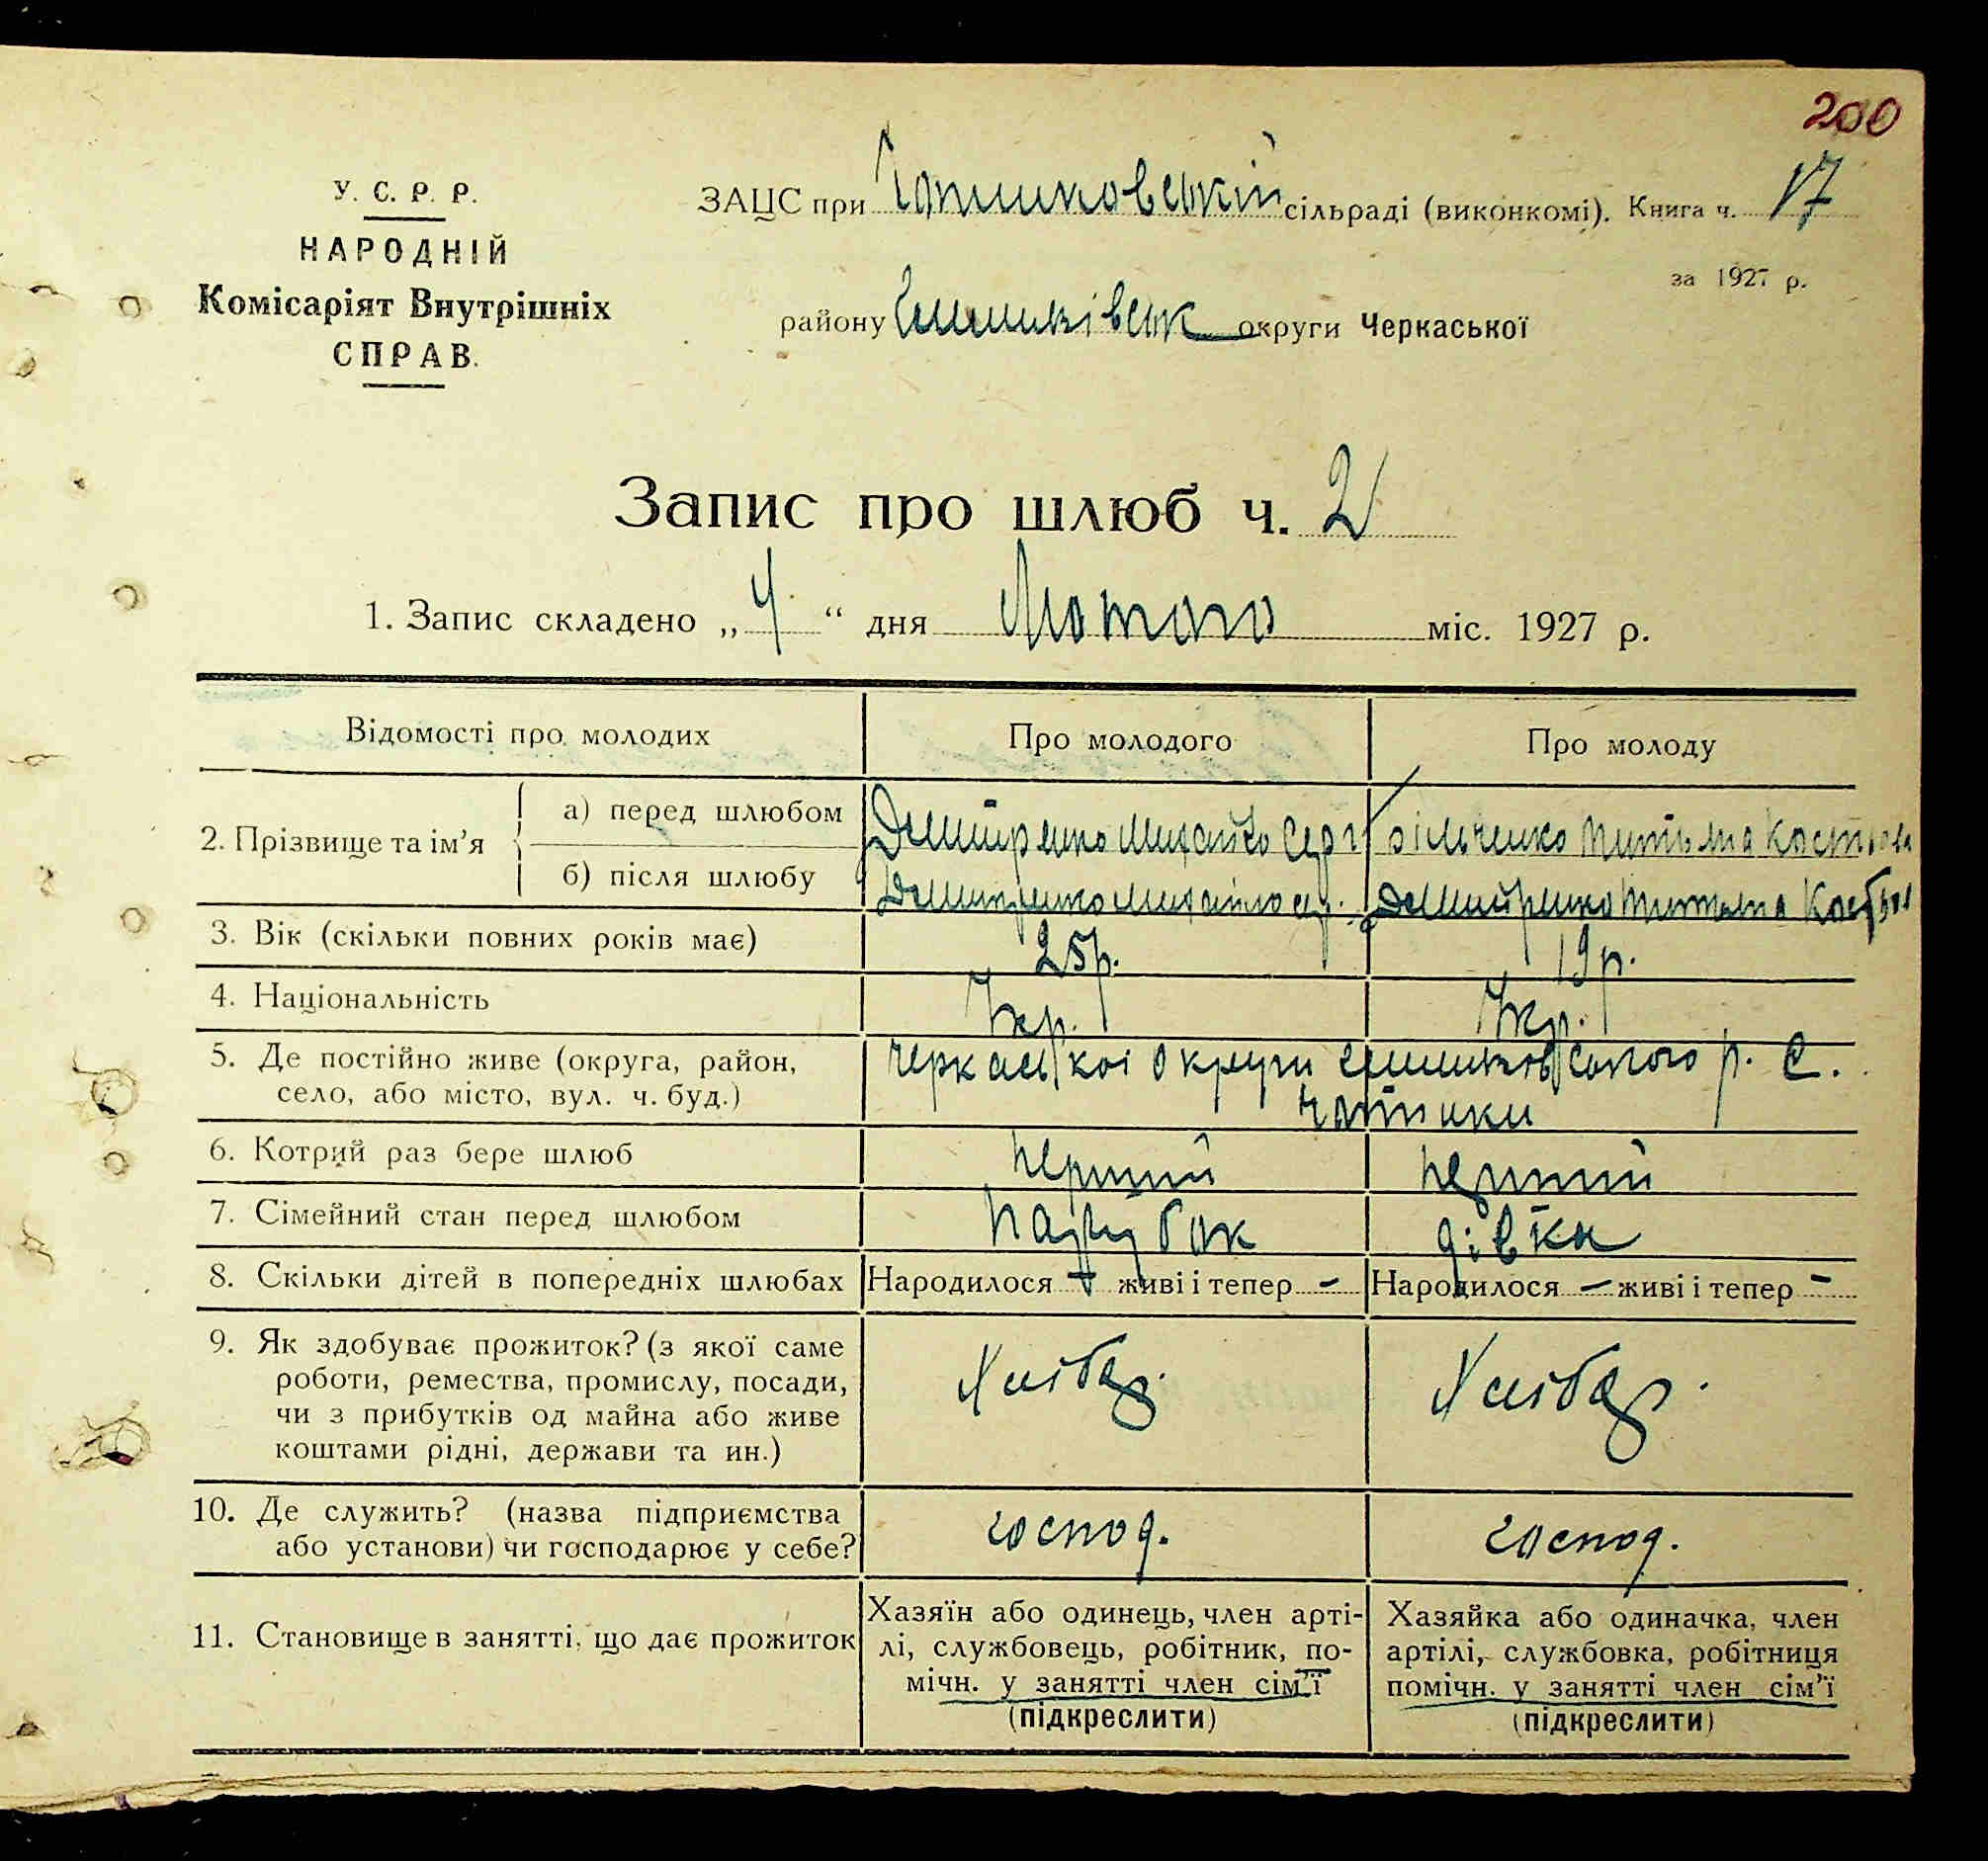 200
У. С. Р. Р.
НАРОДНІЙ
Комісаріят Внутрішніх
СПРАВ.
ЗАЦС при сільраді (виконкомі). Книга ч. 17
за 1927 р.
району округи Черкаської
Запис про шлюб ч. 2
1. Запис складено „ 4 “ дня Лютого міс. 1927 р.
Відомості про молодих Про молодого Про молоду
2. Прізвище та ім’я
а) перед шлюбом Михайло Серг Костьов
б) після шлюбу Михайло
3. Вік (скільки повних років має) 25 р. 19 р.
4. Національність Укр. Укр.
5. Де постійно живе (округа, район, Черкаської Округи р. С.
село, або місто, вул. ч. буд.)
6. Котрий раз бере шлюб перший перший
7. Сімейний стан перед шлюбом парубок дівка
8. Скільки дітей в попередніх шлюбах Народилося – живі і тепер – Народилося – живі і тепер –
9. Як здобуває прожиток? (з якої саме
роботи, ремества, промислу, посади,
чи з прибутків од майна або живе
коштами рідні, держави та ин.)
Хлібор. Хлібор.
10. Де служить? (назва підприємства
або установи) чи господарює у себе?
господ. господ.
11. Становище в занятті, що дає прожиток
Хазяїн або одинець, член арті-
лі, службовець, робітник, по-
мічн. у занятті член сім’ї
(підкреслити)
Хазяйка або одиначка, член
артілі, службовка, робітниця
помічн. у занятті член сім’ї
(підкреслити)